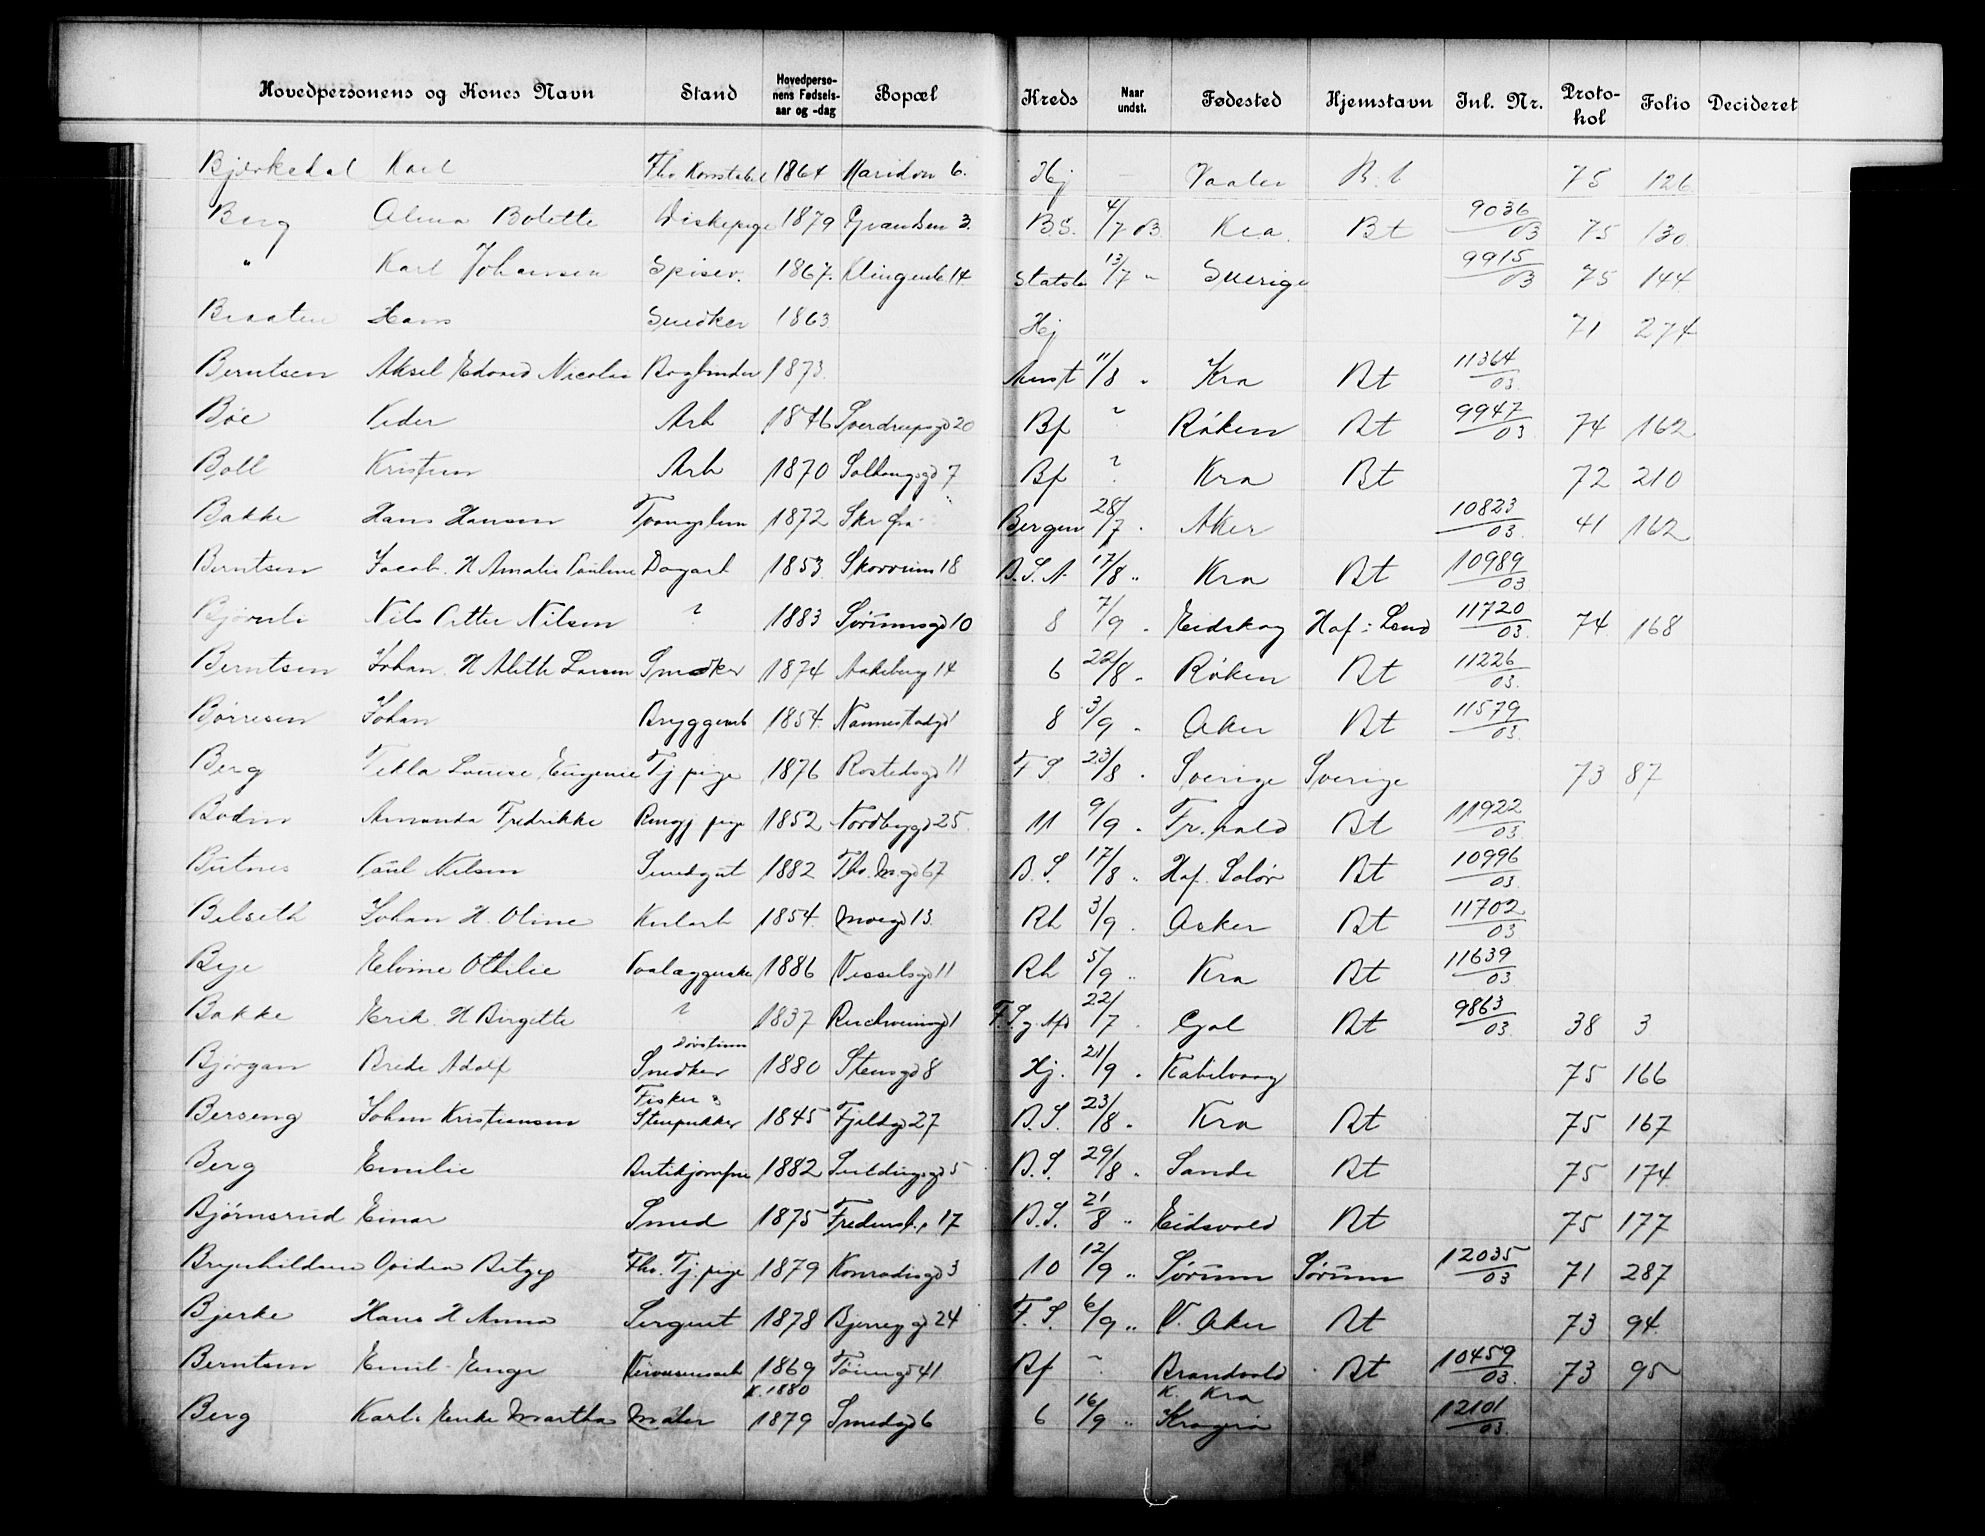 Hovedpersonens og Kones Navn Stand Hovedpersonens Fødselsaar og -dag Bopæl Kreds Naar undst. Fødested Hjemstavn Inl. Nr. Protokol Folio Decideret
Bjerkedal Karl Fhv Konstabel 1864 Maridsv 6. Hj Vaaler B.t 75 126
Berg Alma Bolette Diskepige 1879 Grændsen 3. B.S. 4/7 03 Kra. Bt 9036/03 75 130
" Karl Johansen Spisev. 1867. Klingenb 14 13/7 " Sverige 9915/03 75 144
Braaten Hans Snedker 1863 Hj 71 274
Berntsen Aksel Edvard Nicolai Bogbinder 1873. 11/8 " Kra Bt 11364/03
Bøe Peder Arb 1846 Sverdrupsgd 20 Bf ? Røken Bt 9947/03 74 162
Boll Kristian Arb 1870 7 Bf ? Kra Bt 72 210
Bakke Hans Hansen Tvangslem 1872 Bergen 28/7 " Aker 10823/03 41 162
Berntsen Jacob. H Amalie Pauline Dagarb 1853 Skovveien 18 B.S.A. 17/8 " Kra Bt 10989/03
Bjørnli Nils Otter Nilsen ? 1883 Sørumsgd 10 8 7/9 " Eidskog Hof: Land 11720/03 74 168
Berntsen Johan. H Alette Larsen Snedker 1874 Aakeberg 14 6 22/8 " Røken Bt 11226/03
Børresen Johan Bryggearb 1854. Nannestadgd 1 8 3/9 " Aker Bt 11579/03
Berg Tekla Louise Eugenie Tj pige 1876 Rostedsgd 11 F S 23/8 " Sverige Sverige 73 87
Bodin Amanda Fredrikke Rengj pige 1852 Nordbygd 25. 11 9/9 " Fr.hald Bt 11922/03
Butnes Paul Nilsen Smedgut 1882 Th. M.gd 67 B.S. 17/8 " Hof. Solør Bt 10996/03
Belseth Johan H. Oline Kularb 1854. Moegd 13. Rh 3/9 " Asker Bt 11702/03
Bye Elvine Othilie 1886 Vesselsgd 11 Rh 5/9 " Kra Bt 11639/03
Bakke Erik. H Birgitte ? 1837 1 F.S. 22/7 " Gol Bt 9863/03 38 3
Bjørgan Brede Adolf Snedker 1880 Stensgd 8 Hj. 21/9 " Kabelvaag 75 166
Berseng Johan Kristiansen Fisker & Stenpukker 1845 Fjeldgd 27 B.S. 23/8 " Kra Bt 75 167
Berg Emilie Butikjomfru 1882 5 B.S. 29/8 " Sande Bt 75 174
Bjørnsrud Einar Smed 1875 17 B.S. 21/8 " Eidsvold Bt 75 177
Brynhildsen Ovidia Betzy Fhv. Tj. pige 1879 Konradisgd 3 10 12/9 " Sørum Sørum 12035/03 71 287
Bjerke Hans H Anna Sergent 1878 Bjerregd 24 F. S. 6/9 " V. Aker Bt 73 94
Berntsen Emil - Enger 1869 Tøiengd 41 Bf " Brandvold Bt 10459/03. 73 95
K. 1880 K. Kra
Berg Karl: Enke Martha Maler 1879 Smedgd 6 6 16/9 " Kragerø 12101/03